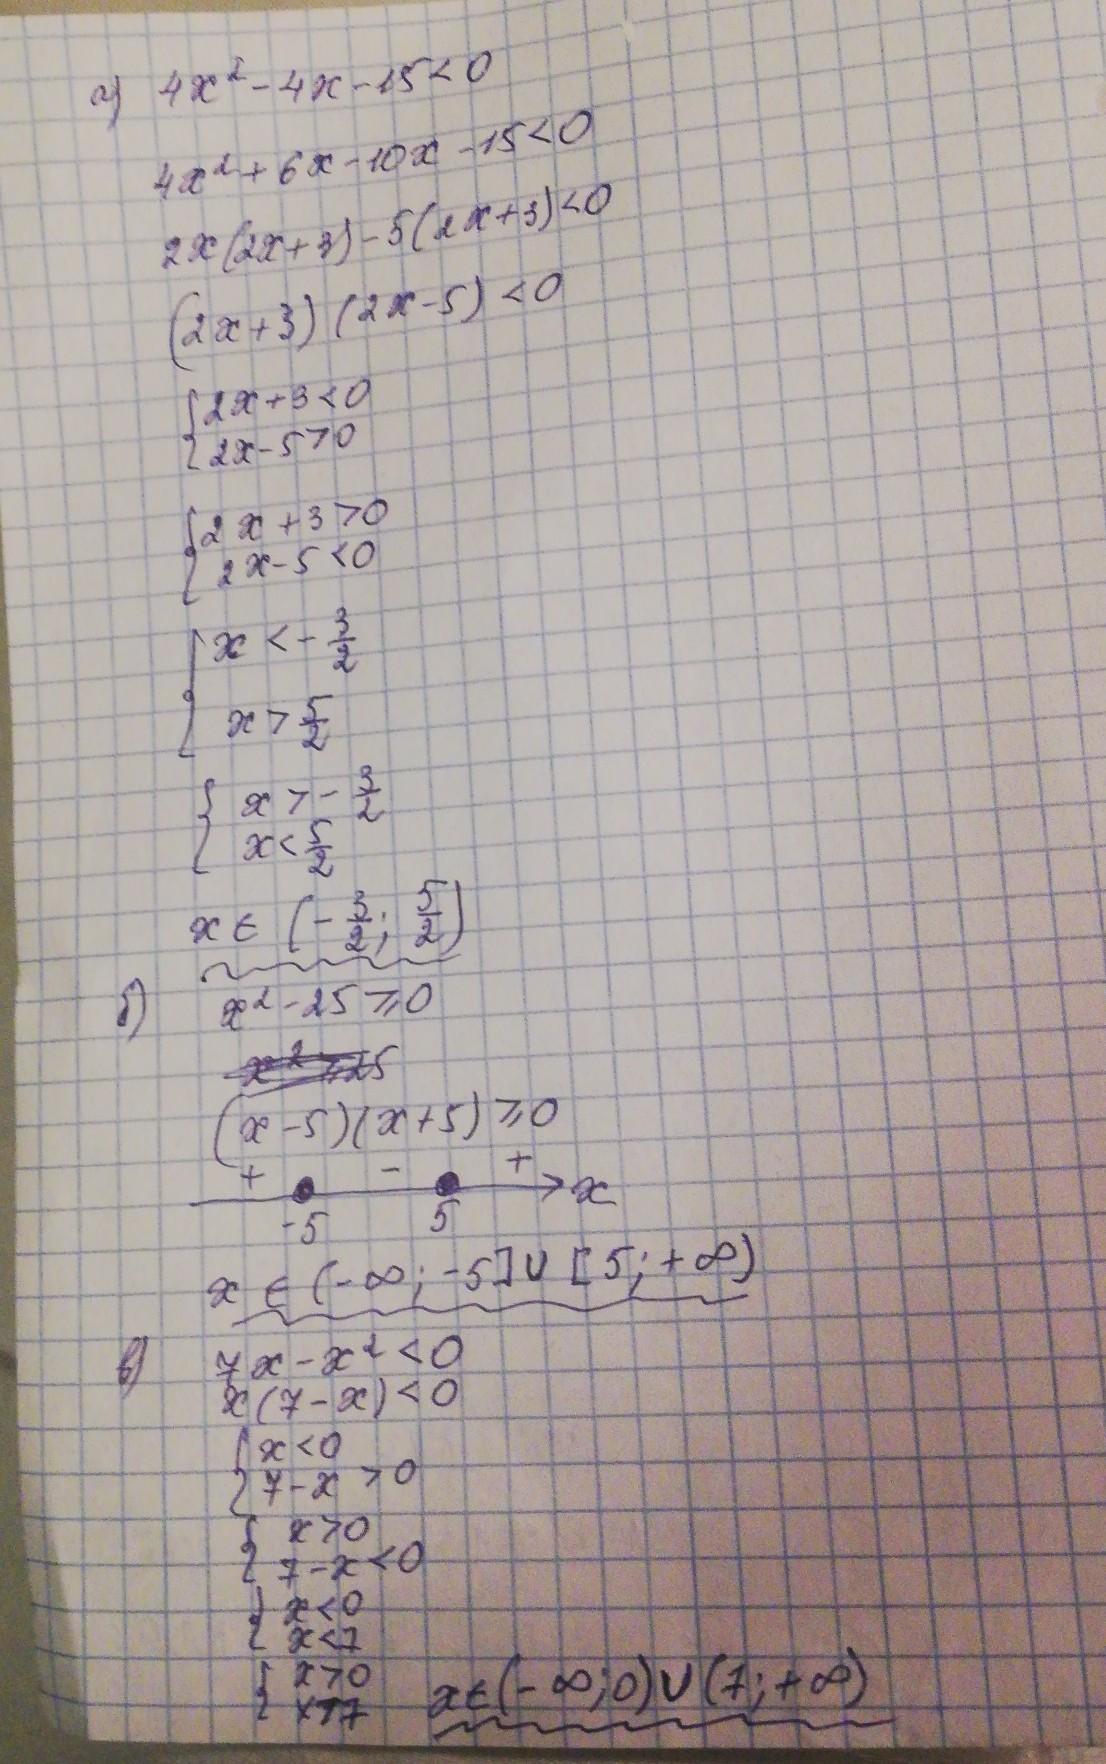 а) 4x² - 4x - 15 < 0
4x² + 6x - 10x - 15 < 0
2x(2x+3) - 5(2x+3) < 0
(2x+3)(2x-5) < 0
{ 2x+3 < 0
2x-5 > 0
{ 2x+3 > 0
2x-5 < 0
{ x < -3/2
x > 5/2
{ x > -3/2
x < 5/2
x ∈ (-3/2; 5/2)
б) x² - 25 ⩾ 0
x² ⩾ 25
(x-5)(x+5) ⩾ 0
+ - +
-5 5 x
x ∈ (-∞; -5] ∪ [5; +∞)
в) 7x - x² < 0
x(7-x) < 0
{ x < 0
7-x > 0
{ x > 0
7-x < 0
{ x < 0
x < 7
{ x > 0
x > 7 x ∈ (-∞; 0) ∪ (7; +∞)